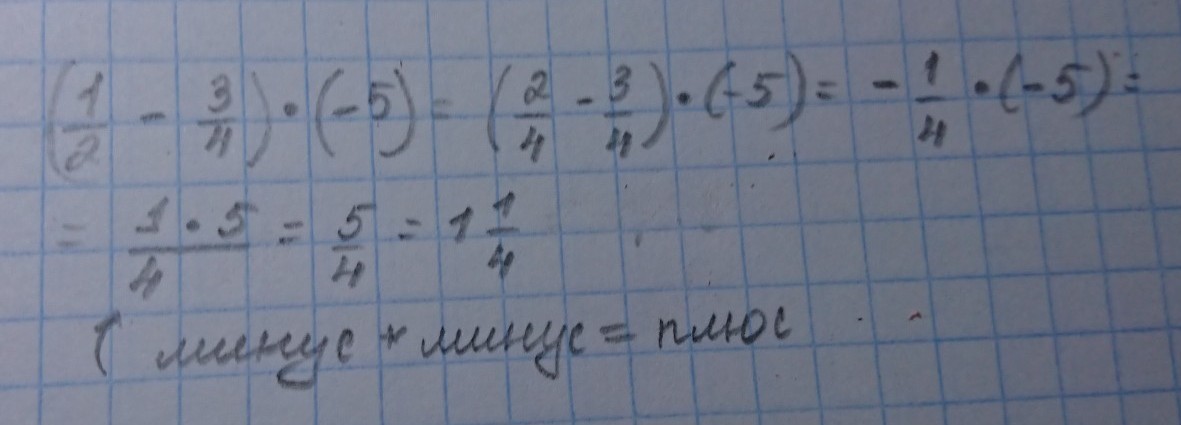 (1/2 - 3/4) · (-5) = (2/4 - 3/4) · (-5) = - 1/4 · (-5) =
= 1 · 5/4 = 5/4 = 1 1/4
( минус * минус = плюс